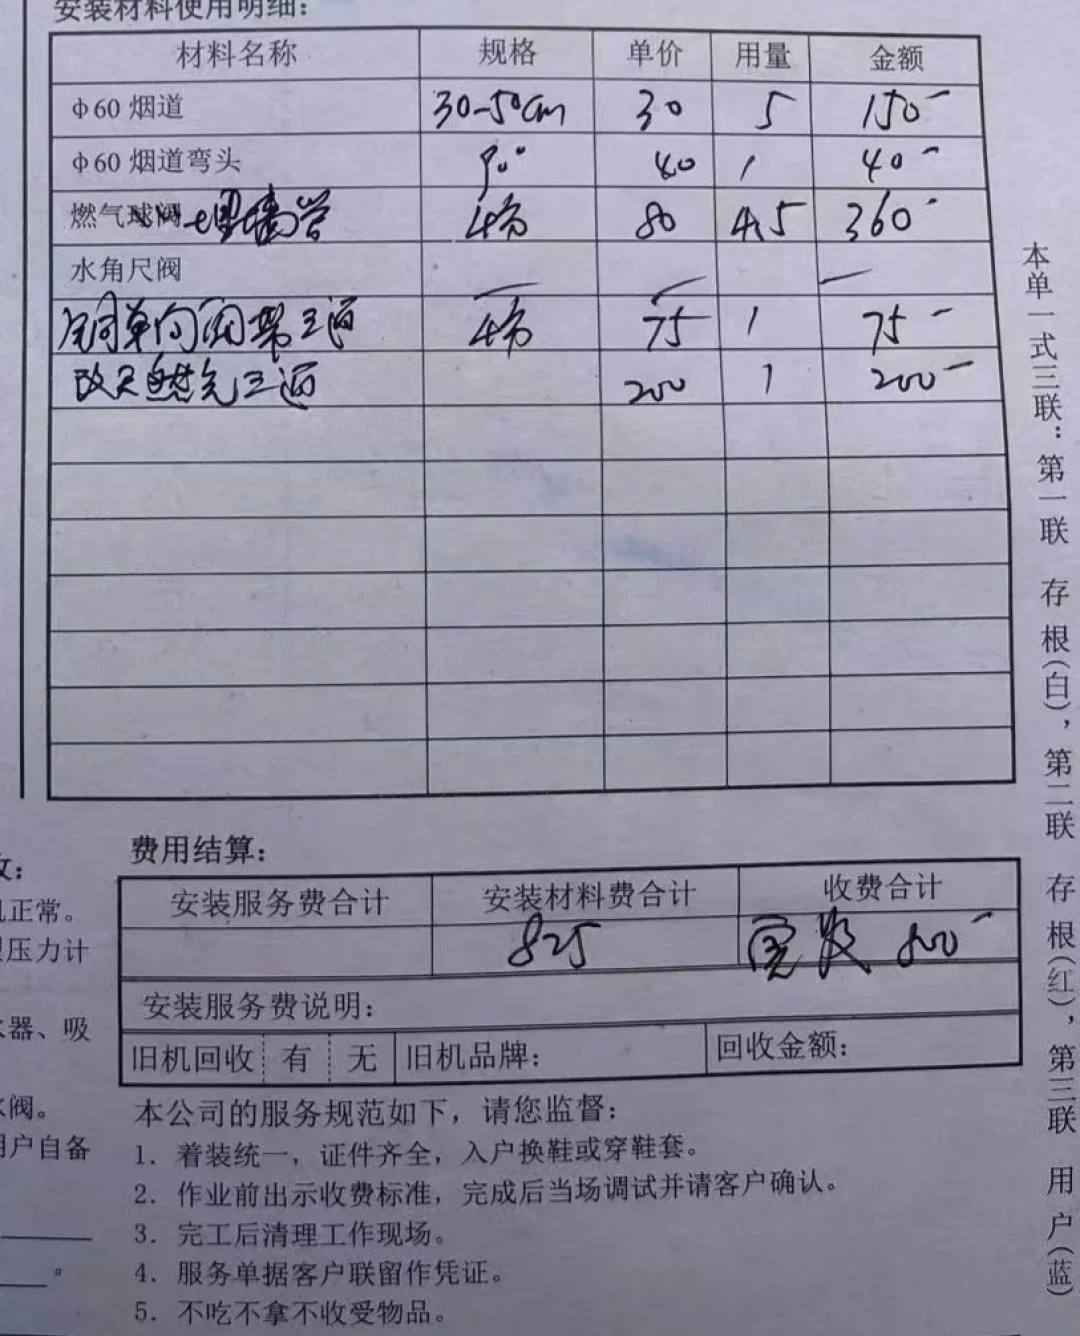 安装材料使用明细:
材料名称 规格 单价 用量 金额
φ60 烟道 30-50cm 30 5 150-
φ60 烟道弯头 90° 40 1 40-
燃气球阀 埋墙管 4分 80 4.5 360-
水角尺阀 — — —
铜单向阀带三通 4分 75 1 75-
改天然气三通 200 1 200-
费用结算:
安装服务费合计 安装材料费合计 收费合计
825 实收 800-
安装服务费说明:
旧机回收 有 无 旧机品牌: 回收金额:
本公司的服务规范如下，请您监督:
1. 着装统一，证件齐全，入户换鞋或穿鞋套。
2. 作业前出示收费标准，完成后当场调试并请客户确认。
3. 完工后清理工作现场。
4. 服务单据客户联留作凭证。
5. 不吃不拿不收受物品。
正常。
压力计
器、吸
阀。
户自备
。
本单一式三联:第一联 存根(白)，第二联 存根(红)，第三联 用户(蓝)